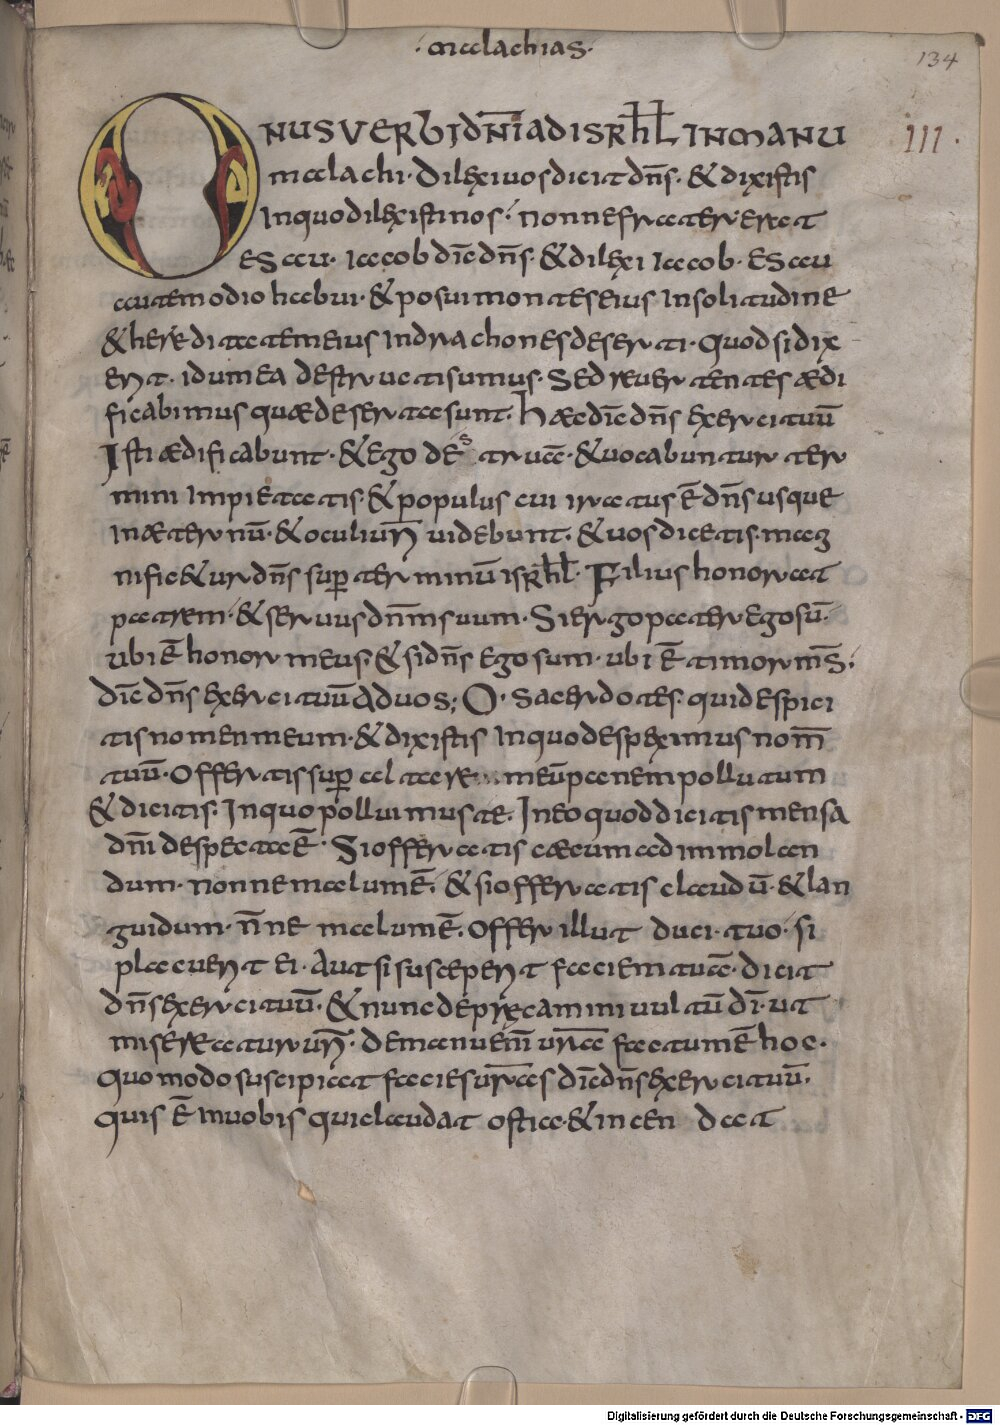 · malachias ·
134
ONUS VERBI DNI AD ISRHL IN MANU
III ·
malachi · Dilexi uos dicit dn̄s · & dixistis
In quo dilexisti nos · nonne frater erat
ESau · Iacob dīc dn̄s · & dilexi Iacob · ESau
autem odio habui · & posui montes eius In solitudinē
& hereditatem eius In drachones deserti · Quod si dix
erit · idumea destructi sumus · Sed reuertentes ædi
ficabimus quæ deserta sunt · Hæc dīc dn̄s exercituū
Isti ædificabunt · & Ego deˢtruā · & uocabuntur ter
mini Impietatis · & populus cui iratus ē dn̄s usque
In æternū · & oculi ur̄i uidebunt · & uos dicetis · mag
nific&ur dn̄s sup̄ terminū isrhl · Filius honorat
patrem · & seruus dn̄m suum · Si ergo pater Ego sū ·
ubi ē honor meus · & si dn̄s Ego sum · ubi ē timor m̄s ·
dīc dn̄s exercituū Ad uos ; O · sacerdotes · qui despici
tis nomen meum · & dixistis In quo despeximus nom̄
tuū · Offertis sup̄ altare meū panem pollutum
& dicitis · In quo polluimus te · In eo quod dicitis mensa
dn̄i despecta ē · Si offeratis cæcum ad immolan
dum · nonne malum ē · & si offeratis claudū · & lan
guidum · n̄ne malum ē · Offer illut duci tuo · si
placuerit ei · Aut si susceperit faciem tuā · dicit
dn̄s exercituū · & nunc depræcamini uultū dī · ut
misereatur ur̄i · de manu eni ur̄a factum ē hoc ·
Quomodo suscipiat facies ur̄as dīc dn̄s exercituū ·
quis ē In uobis qui claudat ostia · & incendat
Digitalisierung gefördert durch die Deutsche Forschungsgemeinschaft - DFG